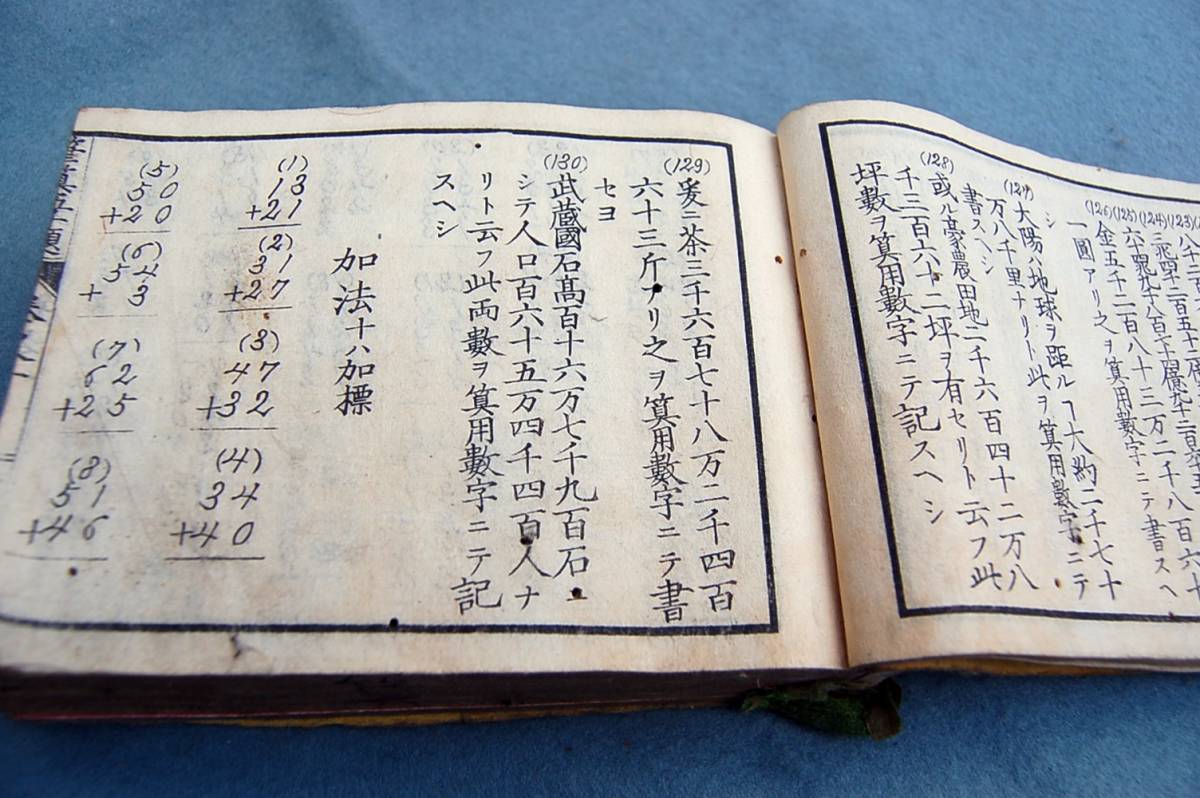 (123)
(124)
(125)
(126)
金五千二百八十三万二千八百六十
一圓アリ之ヲ算用數字ニテ書スヘ
シ
(127)太陽ハ地球ヲ距ルヿ大約二千七十
万八千里ナリト此ヲ算用數字ニテ
書スヘシ
(128)或ル豪農田地二千六百四十二万八
千三百六十二坪ヲ有セリト云フ此
坪數ヲ算用數字ニテ記スヘシ
(129)爰ニ茶三千六百七十八万二千四百
六十三斤ナリ之ヲ算用數字ニテ書
セヨ
(130)武蔵國石髙百十六万七千九百石ニ
シテ人口百六十五万四千四百人ナ
リト云フ此両數ヲ算用數字ニテ記
スヘシ
加法十八加標
(1)
13
+21
(2)
31
+27
(3)
47
+32
(4)
34
+40
(5)
50
+20
(6)
54
+ 3
(7)
62
+25
(8)
51
+46